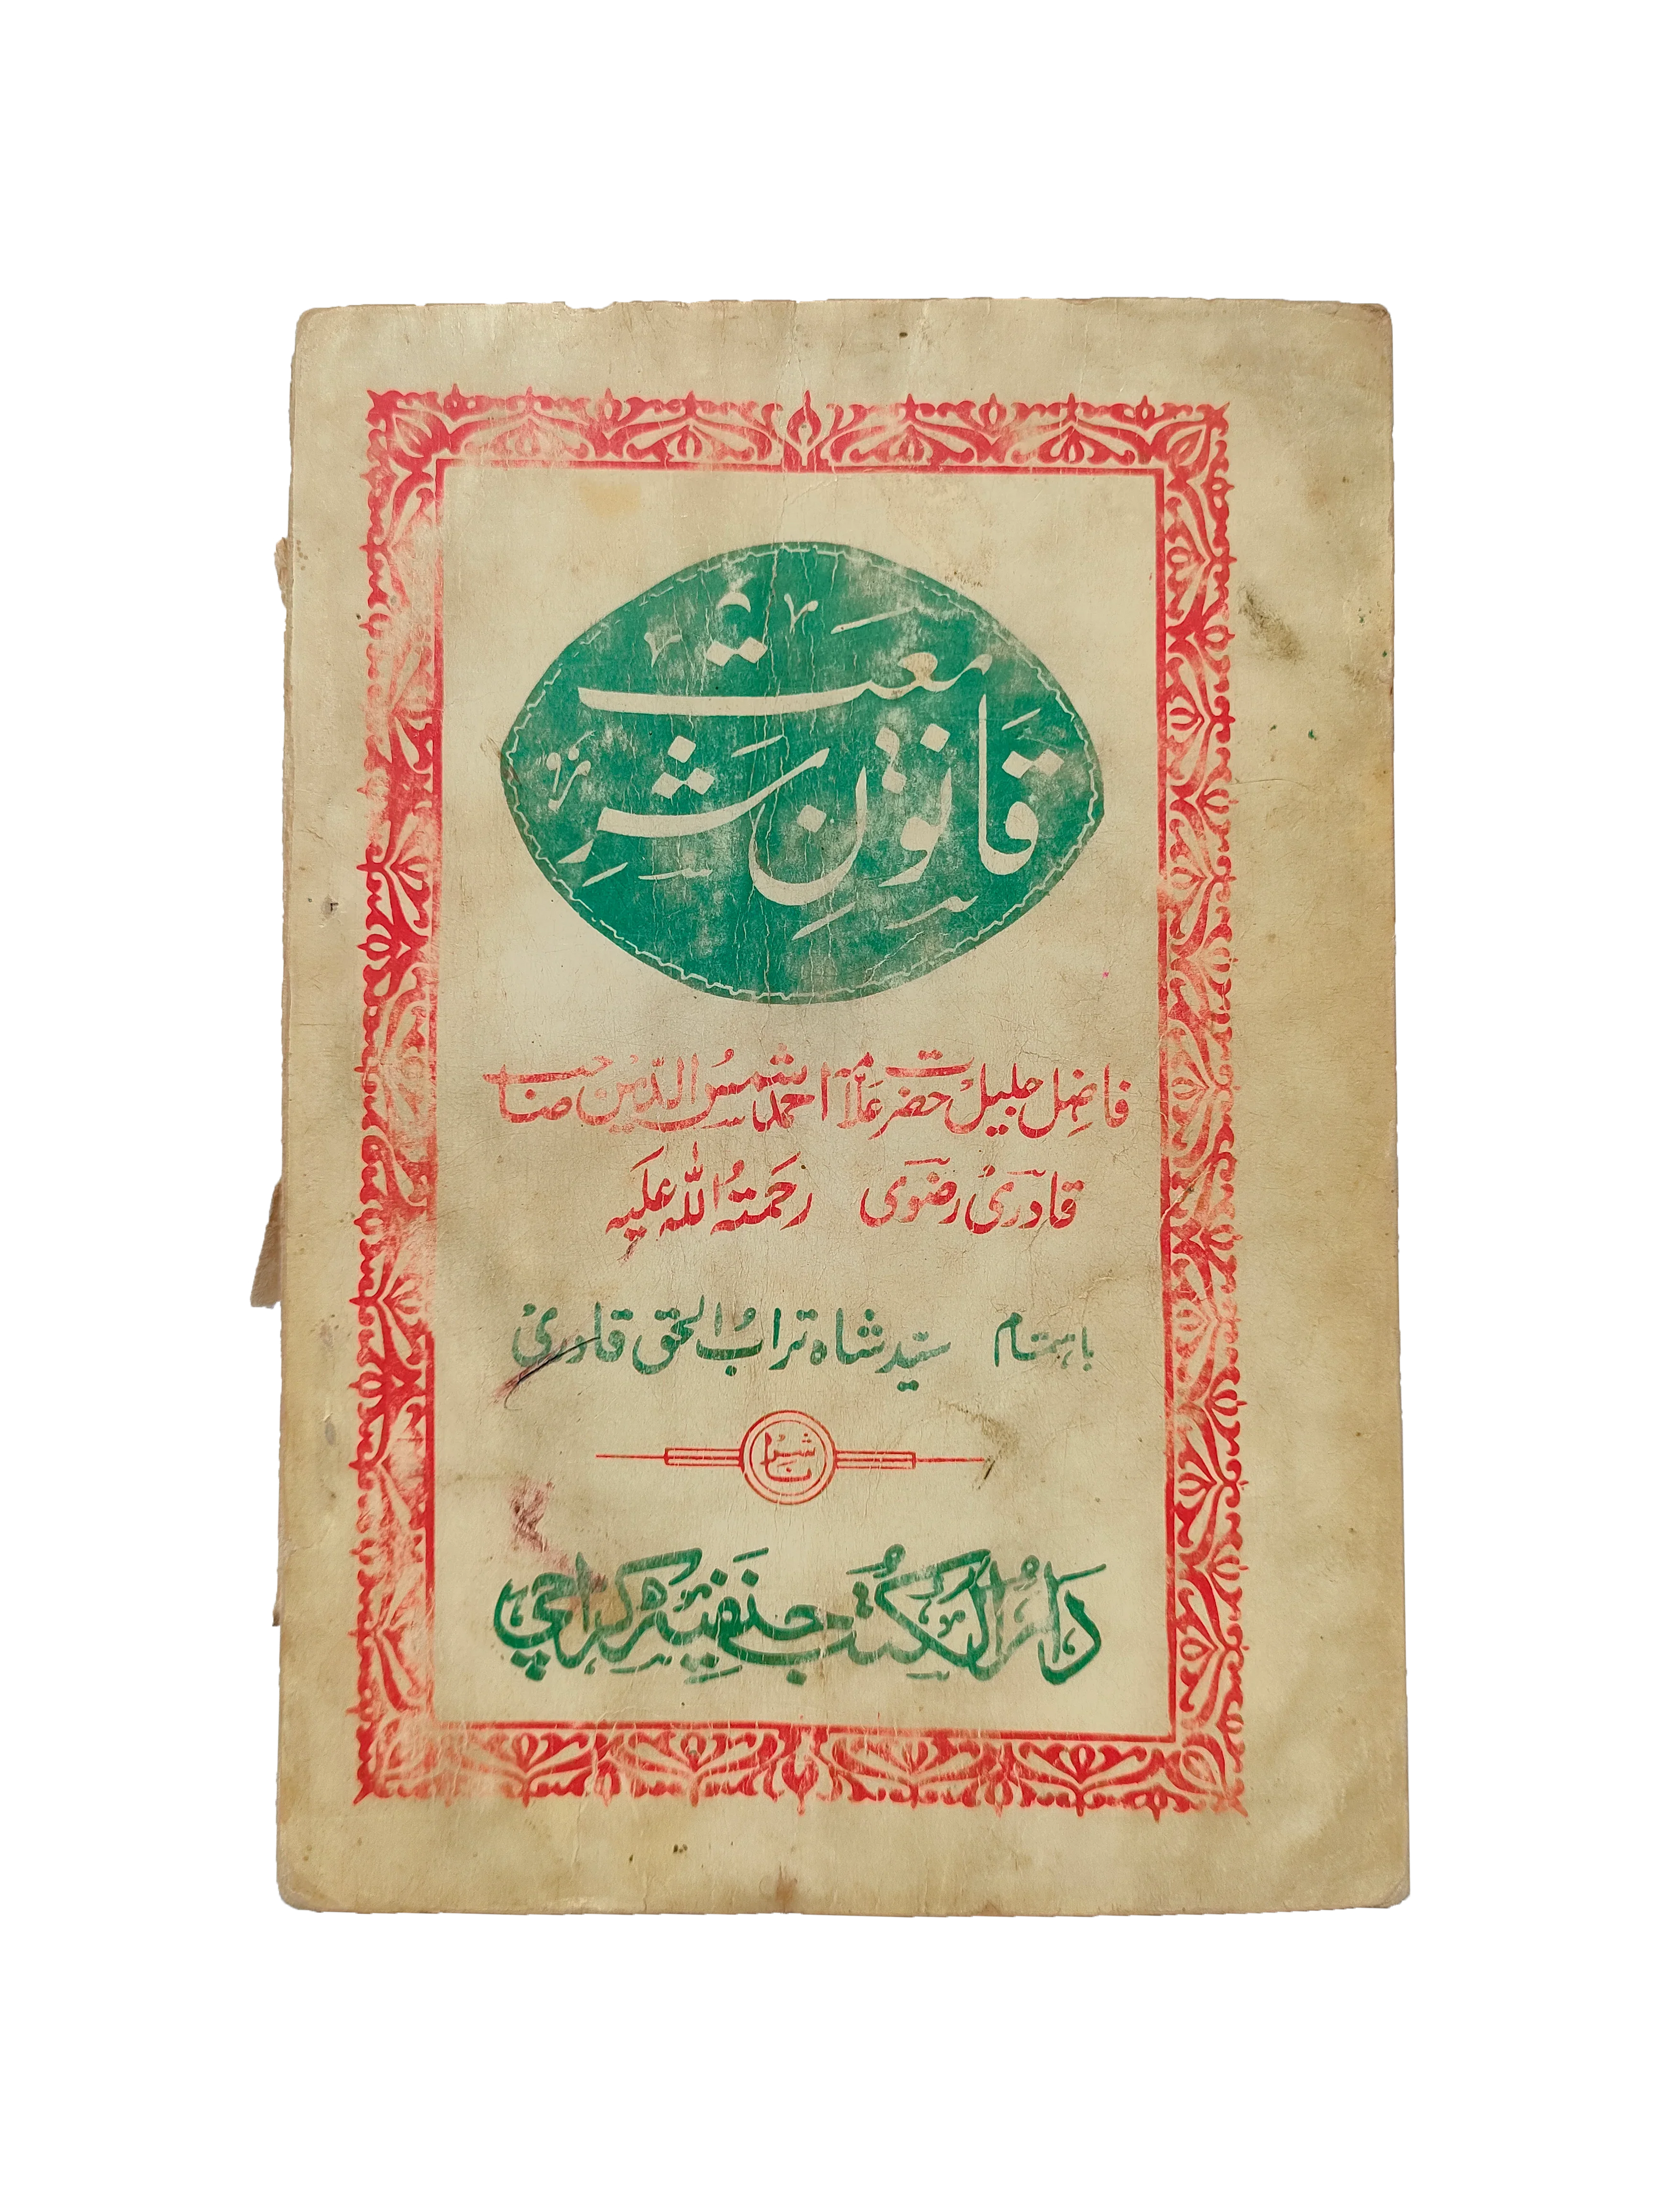 قانونِ شریعت
فاضل جلیل حضرت علامہ احمد شمس الدین صاحب
قادری رضوی رحمتہ اللہ علیہ
باہتمام سید شاہ تراب الحق قادری
ناشر
دار الکتب حنفیہ کراچی